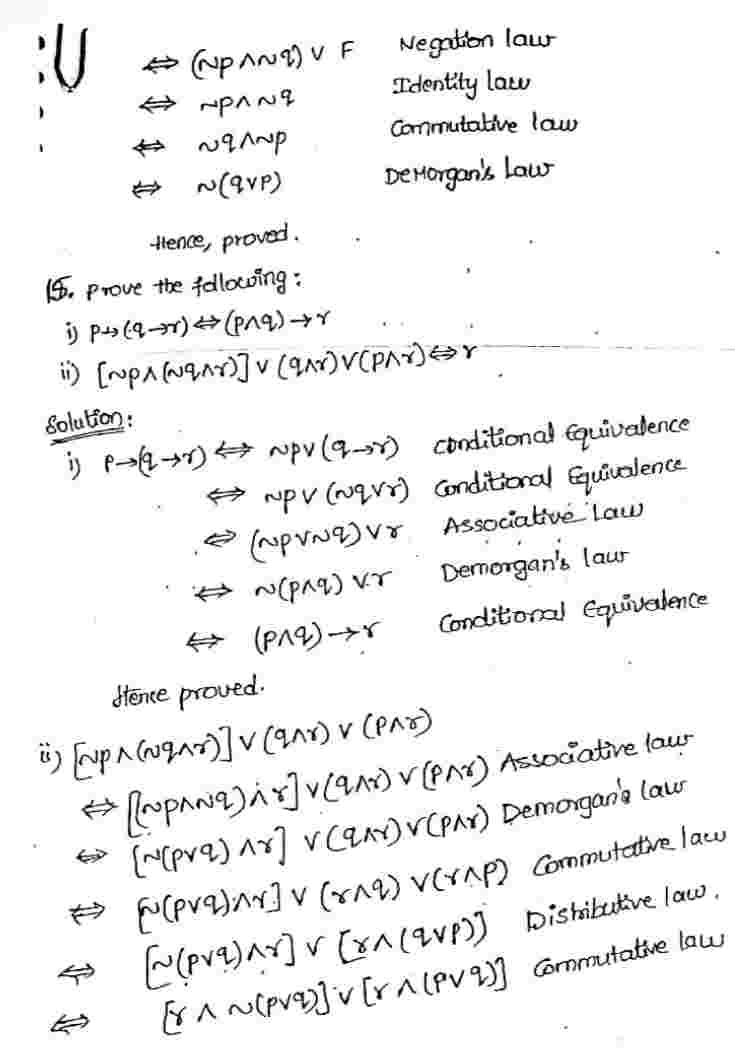 ⇔ (~p∧~q) ∨ F Negation law
⇔ ~p∧~q Identity law
⇔ ~q∧~p Commutative law
⇔ ~(q∨p) DeMorgan's Law
Hence, proved.
15. Prove the following:
i) p→(q→r)⇔(p∧q)→r
ii) [~p∧(~q∧r)]∨(q∧r)∨(p∧r)⇔r
Solution:
i) p→(q→r)⇔ ~p∨(q→r) Conditional Equivalence
⇔ ~p∨(~q∨r) Conditional Equivalence
⇔ (~p∨~q)∨r Associative Law
⇔ ~(p∧q)∨r Demorgan's law
⇔ (p∧q)→r Conditional Equivalence
Hence proved.
ii) [~p∧(~q∧r)]∨(q∧r)∨(p∧r)
⇔ [(~p∧~q)∧r]∨(q∧r)∨(p∧r) Associative law
⇔ [~(p∨q)∧r]∨(q∧r)∨(p∧r) Demorgan's law
⇔ [~(p∨q)∧r]∨(r∧q)∨(r∧p) Commutative law
⇔ [~(p∨q)∧r]∨[r∧(q∨p)] Distributive law.
⇔ [r∧~(p∨q)]∨[r∧(p∨q)] Commutative law